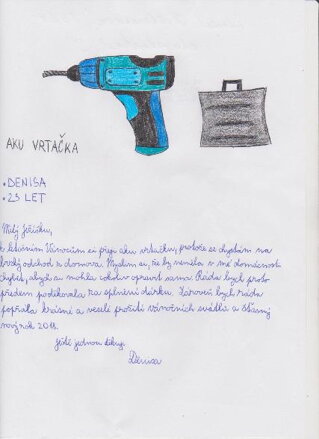 AKU VRTAČKA
• DENISA
• 23 LET
Milý Ježíšku,
k letošním Vánocům si přeji aku vrtačku, protože se chystám na
brzký odchod z domova. Myslím si, že by neměla v mé domácnosti
chybět, abych si mohla cokoliv opravit sama. Ráda bych proto
předem poděkovala za splnění dárku. Zároveň bych ráda
popřála krásné a veselé prožití vánočních svátků a šťastný
nový rok
Ještě jednou děkuji
Denisa